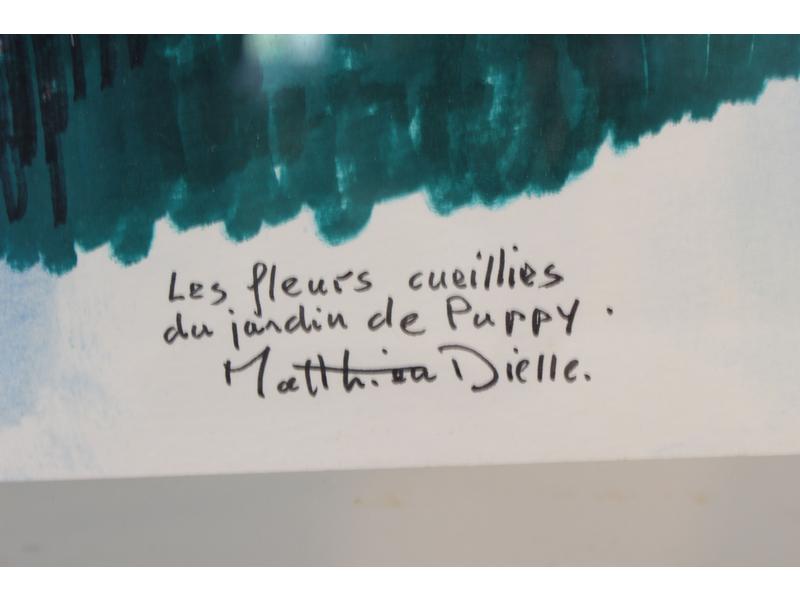 Les fleurs cueillies
du jardin de Puppy.
Matthieu Dielle.